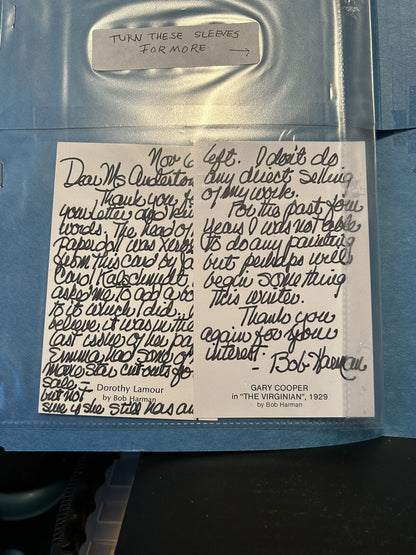 TURN THESE SLEEVES
FOR MORE →
Nov 6
Dear Ms Anderton
Thank you for
your letter and kind
words. The head of
paperdoll was Xerox
from this card by
Carol
asked me to add a bo
to it which I did. I
believe it was in the
last issue of her pa
Emma had some of
movie star cut outs for
sale —
but not
sure if she still has an
Dorothy Lamour
by Bob Harman
left. I don't do
any direct selling
of my work.
For the past few
years I was not able
to do any painting
but perhaps will
begin something
this winter.
Thank you
again for your
interest. - Bob Harman
GARY COOPER
in "THE VIRGINIAN", 1929
by Bob Harman